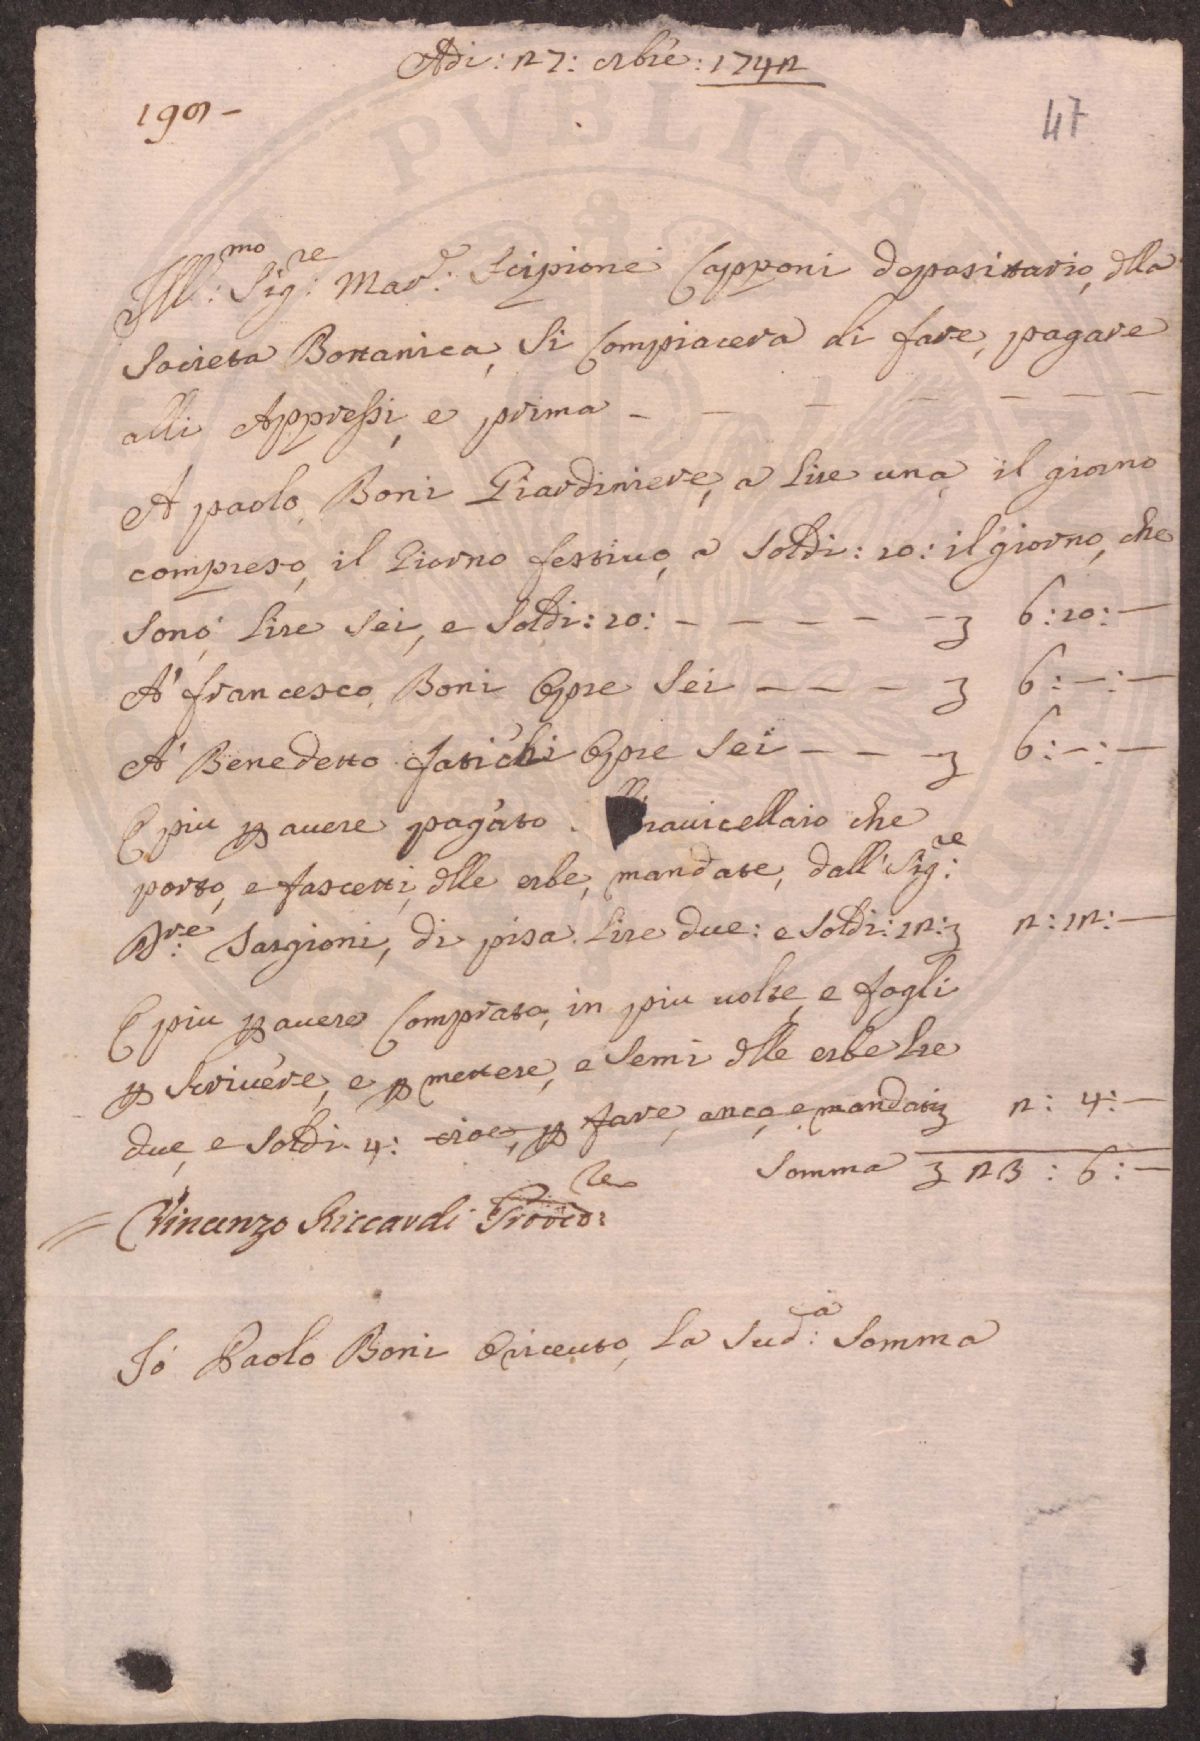 Adi: 27: 8bre: 1742
190 –
47
Ill:mo Sig:re Mar:e Scipione Capponi deposittario, dlla
Societa Bottanica, Si Compiacera di fare, pagare
alli Appressi, e prima – – – – – – –
A paolo, Boni Giardiniere, a lire una, il giorno
compreso, il Giorno festiuo, a Soldi: 10: il giorno, che
sono, lire sei, e Soldi: 10: – – – – – 6: 10: –
A' francesco, Boni Opre Sei – – – 6: –: –
A' Benedetto fatichi Opre Sei – – – 6: –: –
E piu p auere pagato. nauicellaio che
porto, e fascetti, dlle erbe, mandate, dall' Sig:re
D:re Targioni, di pisa. Lire due: e Soldi: 12: 2: 12: –
E piu p auere Comprato, in piu uolte, e fogli
p Scriuere, e p mettere, e Semi dlle erbe Lre
due, e Soldi. 4: cioe, p fare, anco, e mandati 2: 4: –
Somma 23: 6: –
Vincenzo Riccardi Provv:re
Io Paolo Boni O riceuto, la Sud:a Somma
PVBLICA